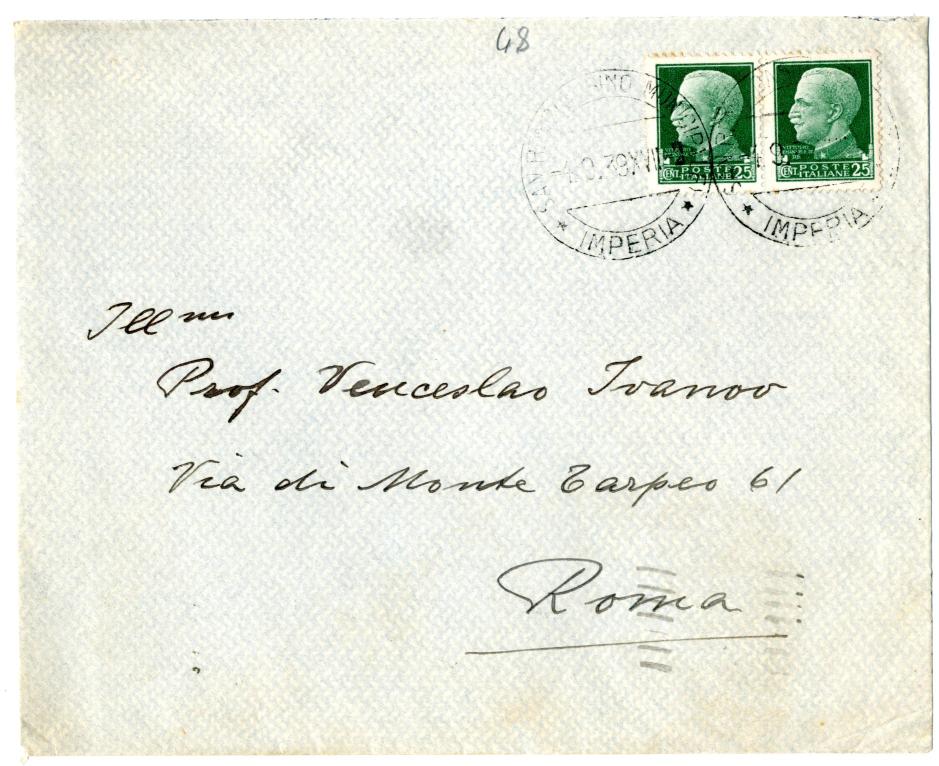 48
MUNICIP
4.9.39XVII
★ IMPERIA ★
★ IMPERIA
CENT. POSTE ITALIANE 25
CENT. POSTE ITALIANE 25
Illmo
Prof. Venceslao Ivanov
Via di Monte Tarpeo 61
Roma